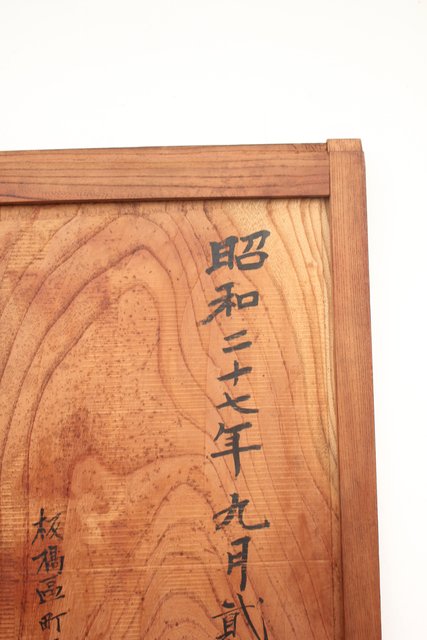 昭和二十七年九月貳
板橋區町